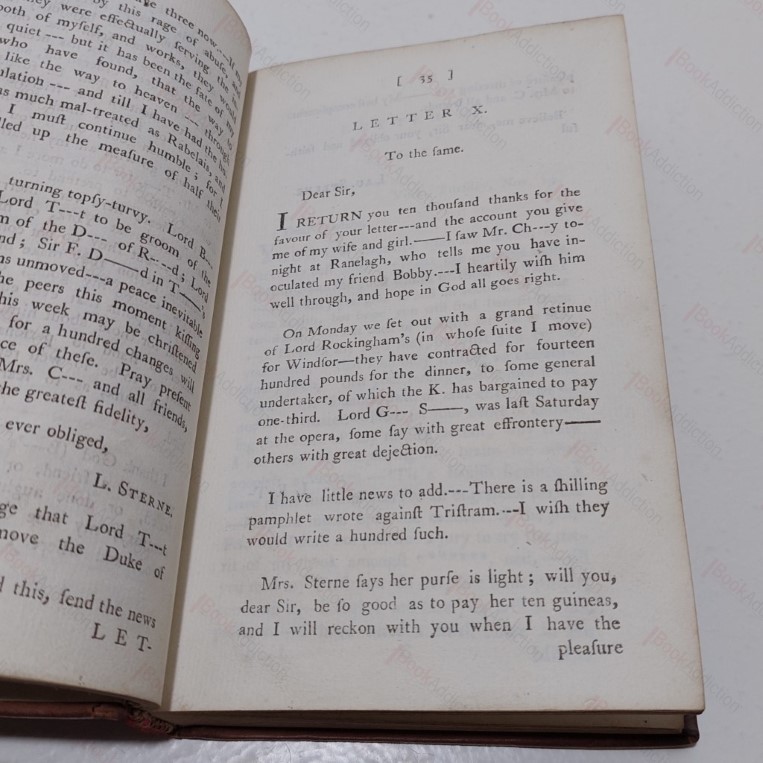 three now
by this rage of abuse, and
they were effectually serving the
both of myſelf, and works, they would
quiet --- but it has been the fate of
who have found, that the way to
like the way to heaven --- through
--- and till I have had the
as much mal-treated as Rabelais, and
I muſt continue humble; for I
up the meaſure of half their
turning topſy-turvy. Lord B---
Lord T---t to be groom of the
of the D--- of R---d; Lord
; Sir F. D——d in T——,
unmoved---a peace inevitable
the peers this moment kiſſing
this week may be chriſtened
for a hundred changes will
of theſe. Pray preſent
Mrs. C--- and all friends,
the greateſt fidelity,
ever obliged,
L. STERNE.
that Lord T---t
the Duke of
this, ſend the news
LET-
[ 35 ]
LETTER X.
To the ſame.
Dear Sir,
I RETURN you ten thouſand thanks for the
favour of your letter---and the account you give
me of my wife and girl.——I ſaw Mr. Ch---y to-
night at Ranelagh, who tells me you have in-
oculated my friend Bobby.---I heartily wiſh him
well through, and hope in God all goes right.
On Monday we ſet out with a grand retinue
of Lord Rockingham's (in whoſe ſuite I move)
for Windſor—they have contracted for fourteen
hundred pounds for the dinner, to ſome general
undertaker, of which the K. has bargained to pay
one-third. Lord G--- S——, was laſt Saturday
at the opera, ſome ſay with great effrontery——
others with great dejection.
I have little news to add.---There is a ſhilling
pamphlet wrote againſt Triſtram.---I wiſh they
would write a hundred ſuch.
Mrs. Sterne ſays her purſe is light; will you,
dear Sir, be ſo good as to pay her ten guineas,
and I will reckon with you when I have the
pleaſure
BookAddiction